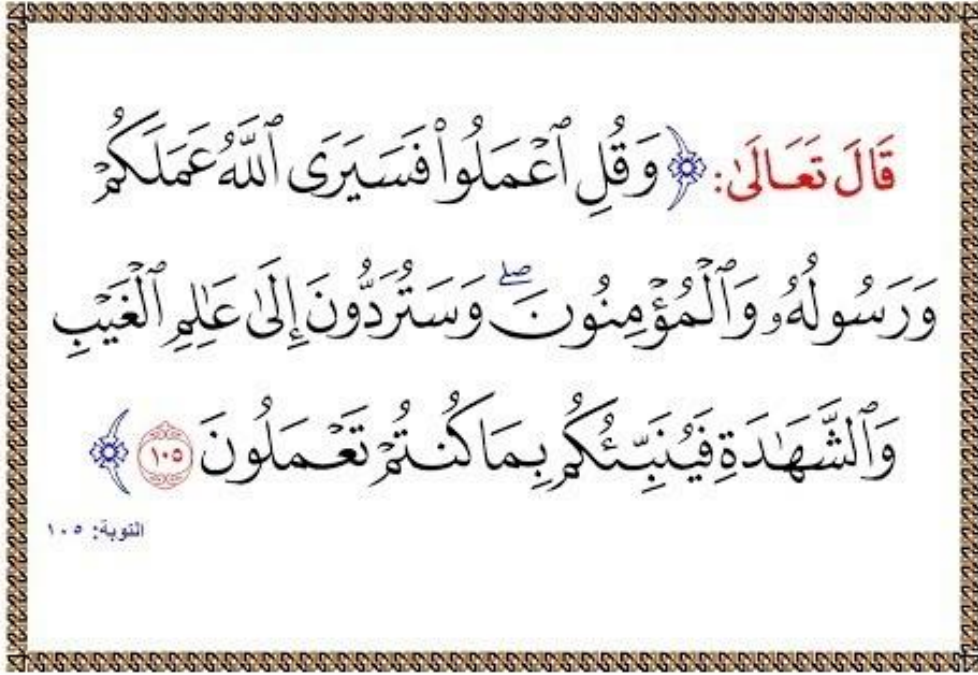 قَالَ تَعَالَىٰ: ﴿وَقُلِ ٱعْمَلُوا۟ فَسَيَرَى ٱللَّهُ عَمَلَكُمْ
وَرَسُولُهُۥ وَٱلْمُؤْمِنُونَ ۖ وَسَتُرَدُّونَ إِلَىٰ عَـٰلِمِ ٱلْغَيْبِ
وَٱلشَّهَـٰدَةِ فَيُنَبِّئُكُم بِمَا كُنتُمْ تَعْمَلُونَ ١٠٥﴾
التوبة: ١٠٥